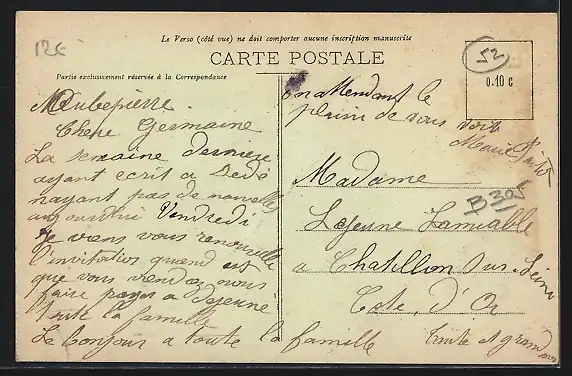 12€
Le Verso (côté vue) ne doit comporter aucune inscription manuscrite
CARTE POSTALE
Partie exclusivement réservée à la Correspondance
52
0.10 c
Aubepierre
Chere Germaine
La semaine derniere
ayant ecrit a Dédé
nayant pas de nouvelles
aujourdhui Vendredi
Je viens vous renouveller
l'invitation quand est
que vous viendez nous
faire a dejeuné
toute la famille
Le bonjour a toute la famille
en attendant le
plaisir de vous voir
Madame
Lejeune Lamiable
a Chatillon sur-Seine
Cote d'Or
B305
Tante et